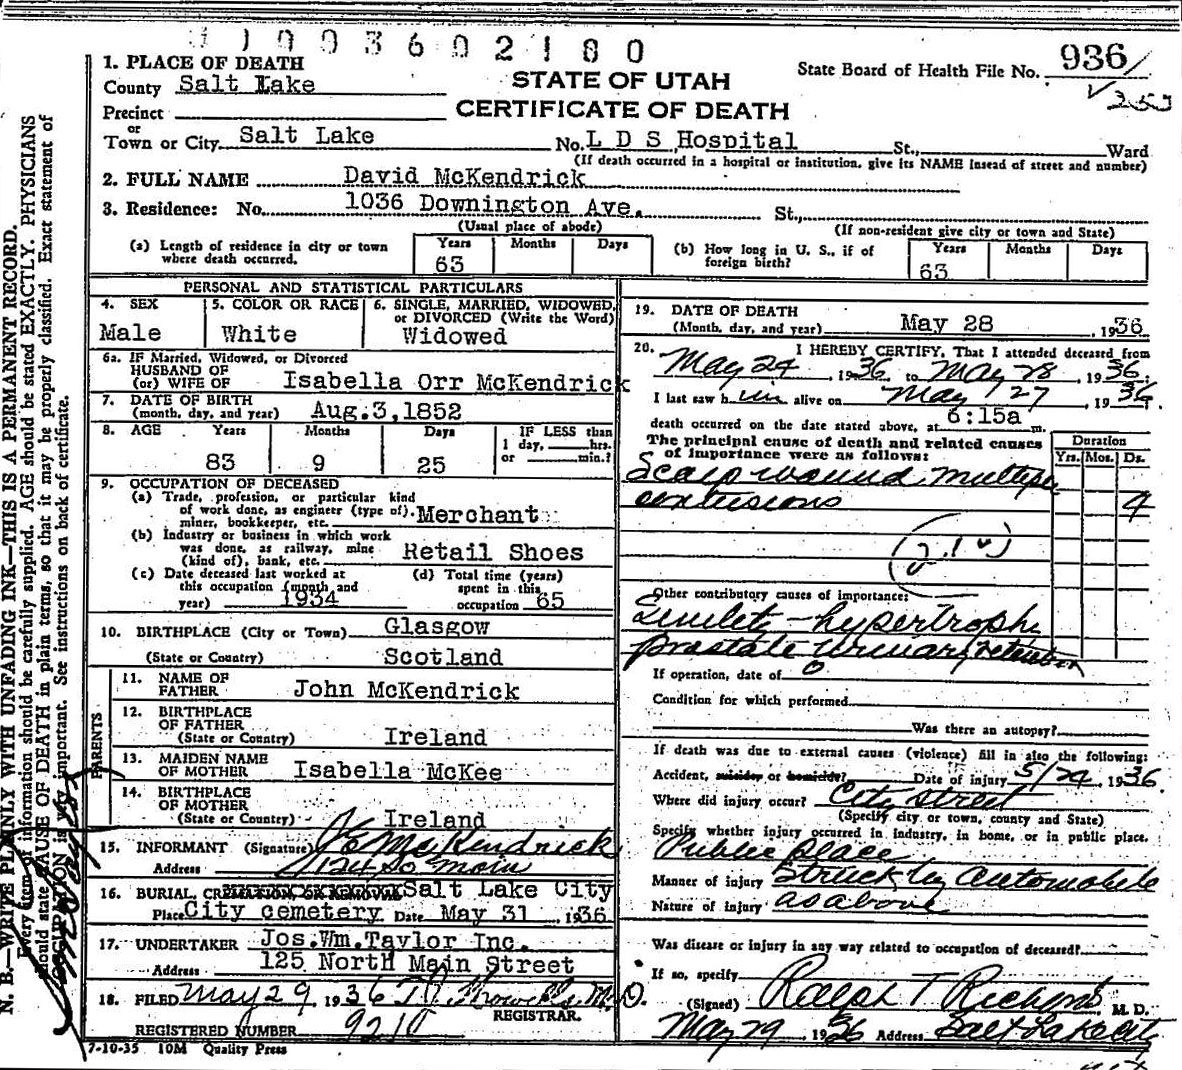 1093602180
1. PLACE OF DEATH
County Salt Lake
STATE OF UTAH
CERTIFICATE OF DEATH
State Board of Health File No. 936
Precinct
or
Town or City Salt Lake No. L D S Hospital St., Ward
(If death occurred in a hospital or institution, give its NAME insead of street and number)
2. FULL NAME David McKendrick
3. Residence: No. 1036 Downington Ave. St.,
(Usual place of abode) (If non-resident give city or town and State)
(a) Length of residence in city or town where death occurred. Years 63 Months Days
(b) How long in U. S., if of foreign birth? Years 63 Months Days
PERSONAL AND STATISTICAL PARTICULARS
4. SEX Male
5. COLOR OR RACE White
6. SINGLE, MARRIED, WIDOWED, or DIVORCED (Write the Word) Widowed
6a. IF Married, Widowed, or Divorced
HUSBAND OF
(or) WIFE OF Isabella Orr McKendrick
7. DATE OF BIRTH
(month, day, and year) Aug.3,1852
8. AGE Years 83 Months 9 Days 25 IF LESS than 1 day, hrs. or min.?
9. OCCUPATION OF DECEASED
(a) Trade, profession, or particular kind
of work done, as engineer (type of).
miner, bookkeeper, etc. Merchant
(b) Industry or business in which work
was done, as railway, mine
(kind of), bank, etc. Retail Shoes
(c) Date deceased last worked at
this occupation (month and
year) 1934
(d) Total time (years)
spent in this
occupation 65
10. BIRTHPLACE (City or Town) Glasgow
(State or Country) Scotland
PARENTS
11. NAME OF
FATHER John McKendrick
12. BIRTHPLACE
OF FATHER
(State or Country) Ireland
13. MAIDEN NAME
OF MOTHER Isabella McKee
14. BIRTHPLACE
OF MOTHER
(State or Country) Ireland
15. INFORMANT (Signature) J E McKendrick
Address 124 So Main
16. BURIAL, CREMATION, OR REMOVAL Salt Lake City
Place City cemetery Date May 31 1936
17. UNDERTAKER Jos.Wm.Taylor Inc.
Address 125 North Main Street
18. FILED May 29, 1936 M.D.
REGISTRAR.
REGISTERED NUMBER 9210
7-10-35 10M Quality Press
19. DATE OF DEATH
(Month, day, and year) May 28, 1936
20. I HEREBY CERTIFY, That I attended deceased from
May 24, 1936 to May 28, 1936.
I last saw him alive on May 27, 1936.
death occurred on the date stated above, at 6:15a m.
The principal cause of death and related causes
of importance were as follows:
Duration
Yrs. Mos. Ds.
Scalp wound, multiple
contusions 4
Other contributory causes of importance:
Senility - hypertrophy
prostate urinary retention
If operation, date of 0
Condition for which performed
Was there an autopsy?
If death was due to external causes (violence) fill in also the following:
Accident, suicide or homicide? Date of injury 5/24, 1936
Where did injury occur? City Street
(Specify city or town, county and State)
Specify whether injury occurred in industry, in home, or in public place.
Public place
Manner of injury Struck by automobile
Nature of injury as above
Was disease or injury in any way related to occupation of deceased?
If so, specify
(Signed) Ralph T Richards M. D.
May 29 1936 Address Salt Lake City
N. B.—WRITE PLAINLY WITH UNFADING INK—THIS IS A PERMANENT RECORD.
Every item of information should be carefully supplied. AGE should be stated EXACTLY. PHYSICIANS
should state CAUSE OF DEATH in plain terms, so that it may be properly classified. Exact statement of
OCCUPATION is very important. See instructions on back of certificate.